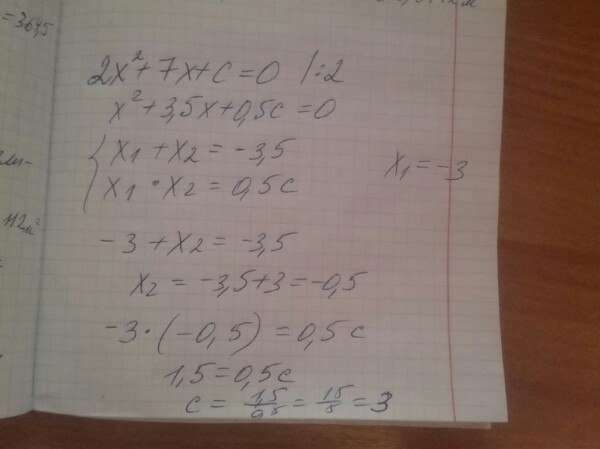 = 36,5
2x² + 7x + c = 0 | :2
x² + 3,5x + 0,5c = 0
{ x₁ + x₂ = -3,5
x₁ · x₂ = 0,5c
x₁ = -3
112м²
-3 + x₂ = -3,5
x₂ = -3,5 + 3 = -0,5
-3 · (-0,5) = 0,5c
1,5 = 0,5c
c = 1,5/0,5 = 15/5 = 3